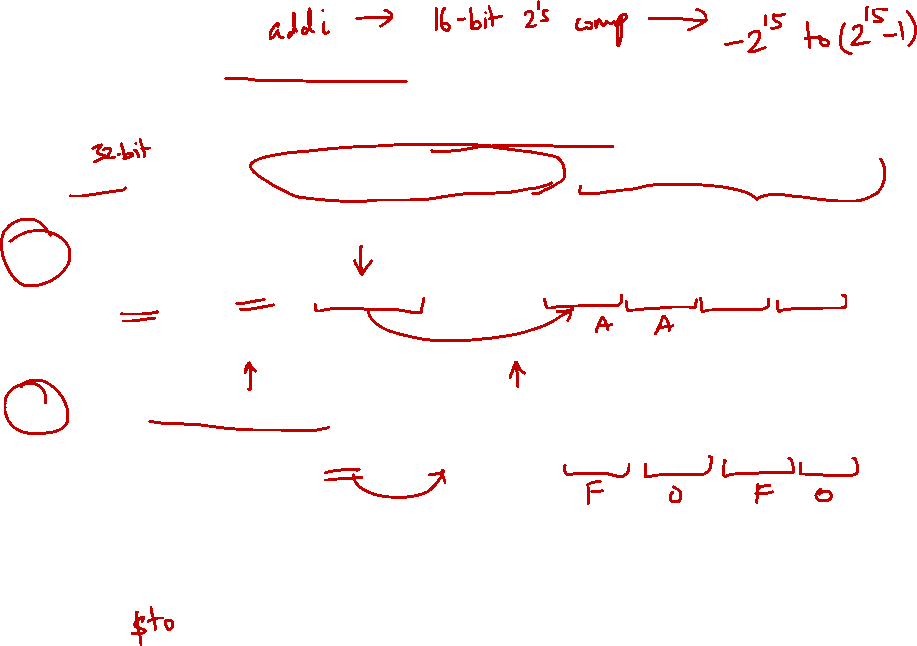 addi → 16-bit 2's comp → -2^15 to (2^15-1)
32-bit
A A
F 0 F 0
$t0